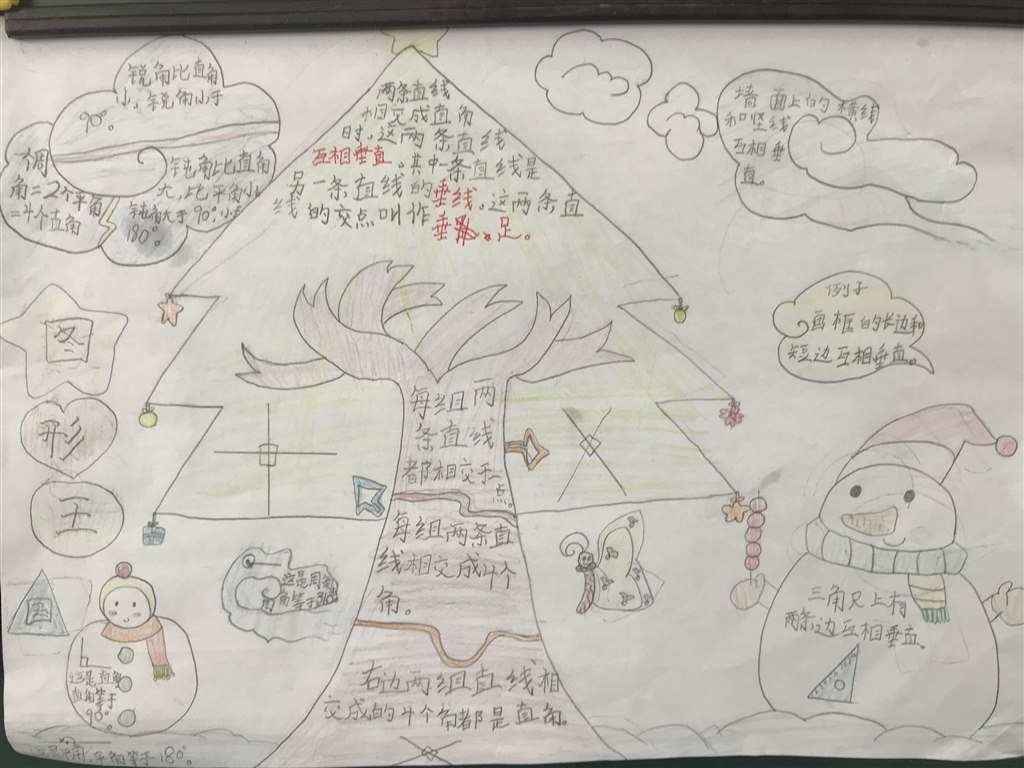 锐角比直角
小，锐角小于
90°。
钝角比直角
大，比平角小
钝角大于90°小于
180°。
周
角=2个平角
=4个直角
两条直线
相交成直角
时，这两条直线
互相垂直。其中一条直线是
另一条直线的垂线。这两条直
线的交点叫作垂足。
墙面上的横线
和竖线
互相垂
直。
例子
画框的长边和
短边互相垂直。
图
形
王
国
每组两
条直线
都相交于一
点。
每组两条直
线相交成4个
角。
右边两组直线相
交成的4个角都是直角。
这是周角
周角等于360°
三角尺上有
两条边互相垂直。
这是直角
直角等于
90°
平角等于180°。